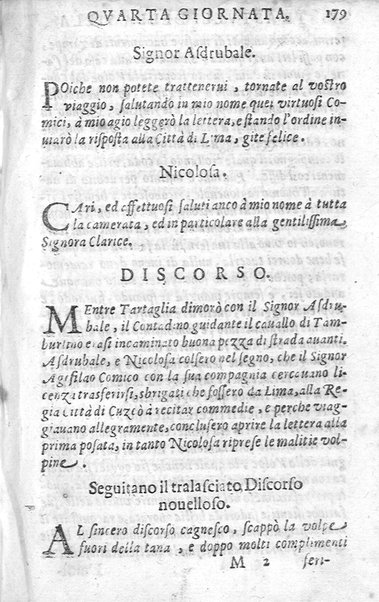 QVARTA GIORNATA. 179
Signor Asdrubale.
POiche non potete trattenerui, tornate al vostro
viaggio, salutando in mio nome quei virtuosi Co-
mici, à mio agio leggerò la lettera, e stando l'ordine in-
uiarò la risposta alla Città di Lima, gite felice.
Nicolosa.
CAri, ed affettuosi saluti anco à mio nome à tutta
la camerata, ed in particolare alla gentilissima
Signora Clarice.
DISCORSO.
MEntre Tartaglia dimorò con il Signor Asdru-
bale, il Contadino guidante il cauallo di Tam-
burino erasi incaminato buona pezza di strada auanti.
Asdrubale, e Nicolosa colsero nel segno, che il Signor
Agesilao Comico con la sua compagnia cercauano li-
cenza trasferirsi, sbrigati che fossero da Lima, alla Re-
gia Città di Cuzcò à recitar commedie, e perche viag-
giauano allegramente, conclusero aprire la lettera alla
prima posata, in tanto Nicolosa riprese le malitie vol-
pine.
Seguitano il tralasciato Discorso
nouelloso.
AL sincero discorso cagnesco, scappò la volpe
fuori della tana, e doppo molti complimenti
M 2 seri-